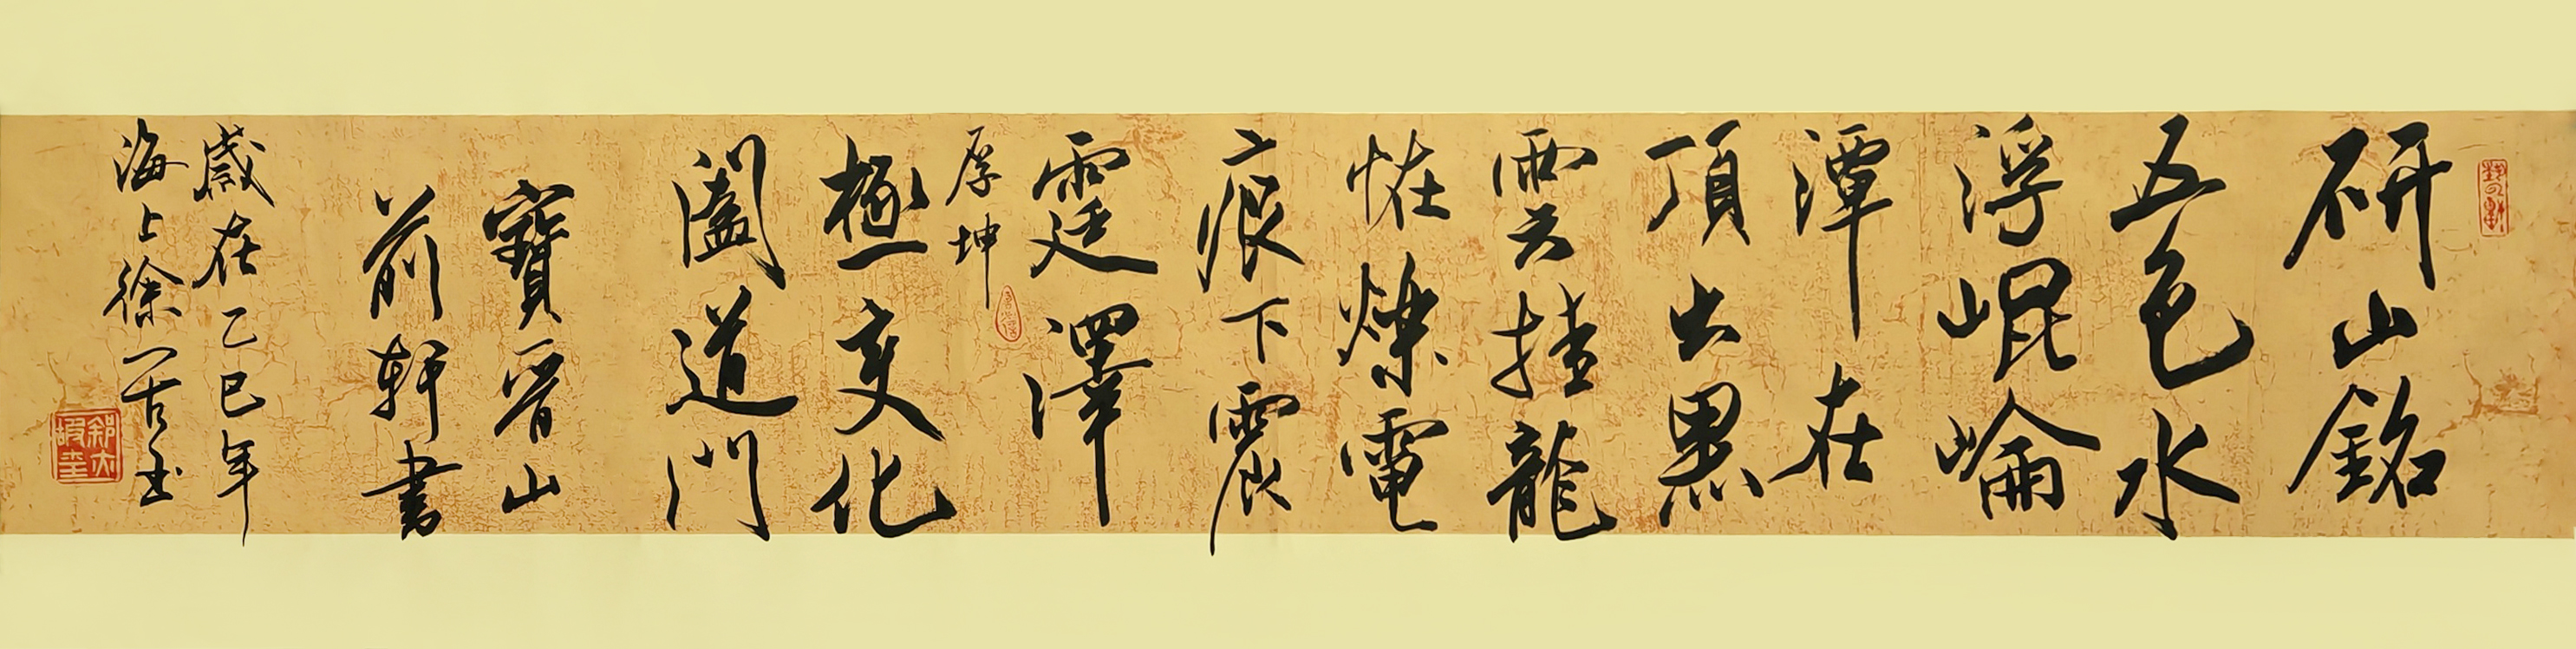 研山銘
五色水
浮崐崘
潭在
頂出黑
雲挂龍
恠爍電
痕下震
霆澤
厚坤
極變化
闔道門
寶晉山
前軒書
歲在乙巳年
海上徐一古書